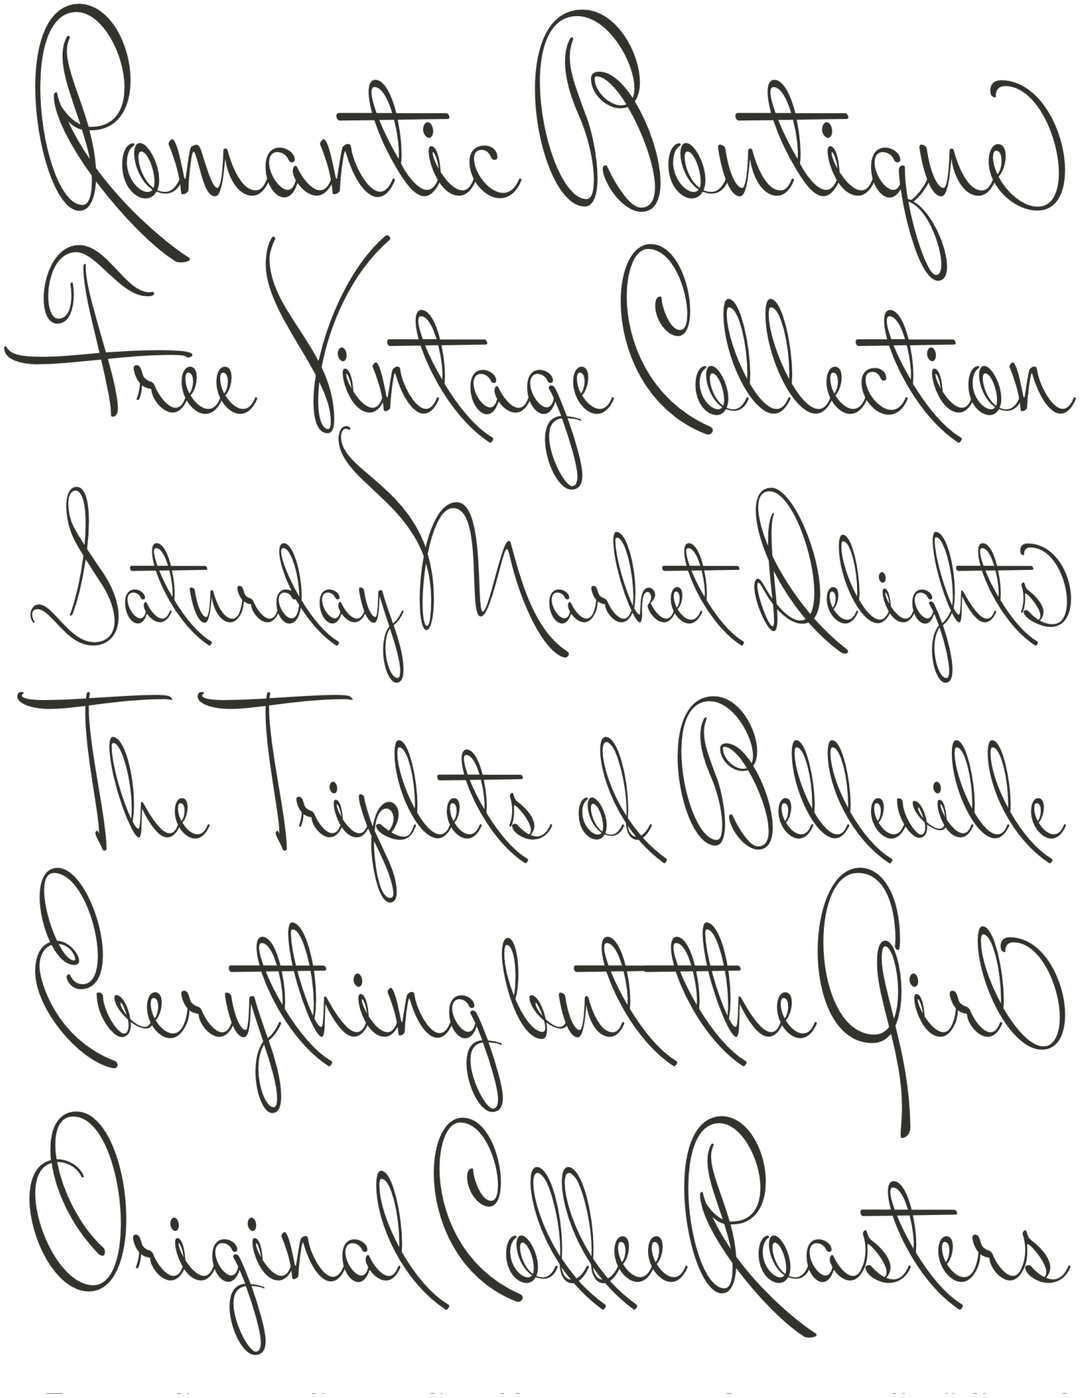 Romantic Boutique
Free Vintage Collection
Saturday Market Delights
The Triplets of Belleville
Everything but the Girl
Original Coffee Roasters